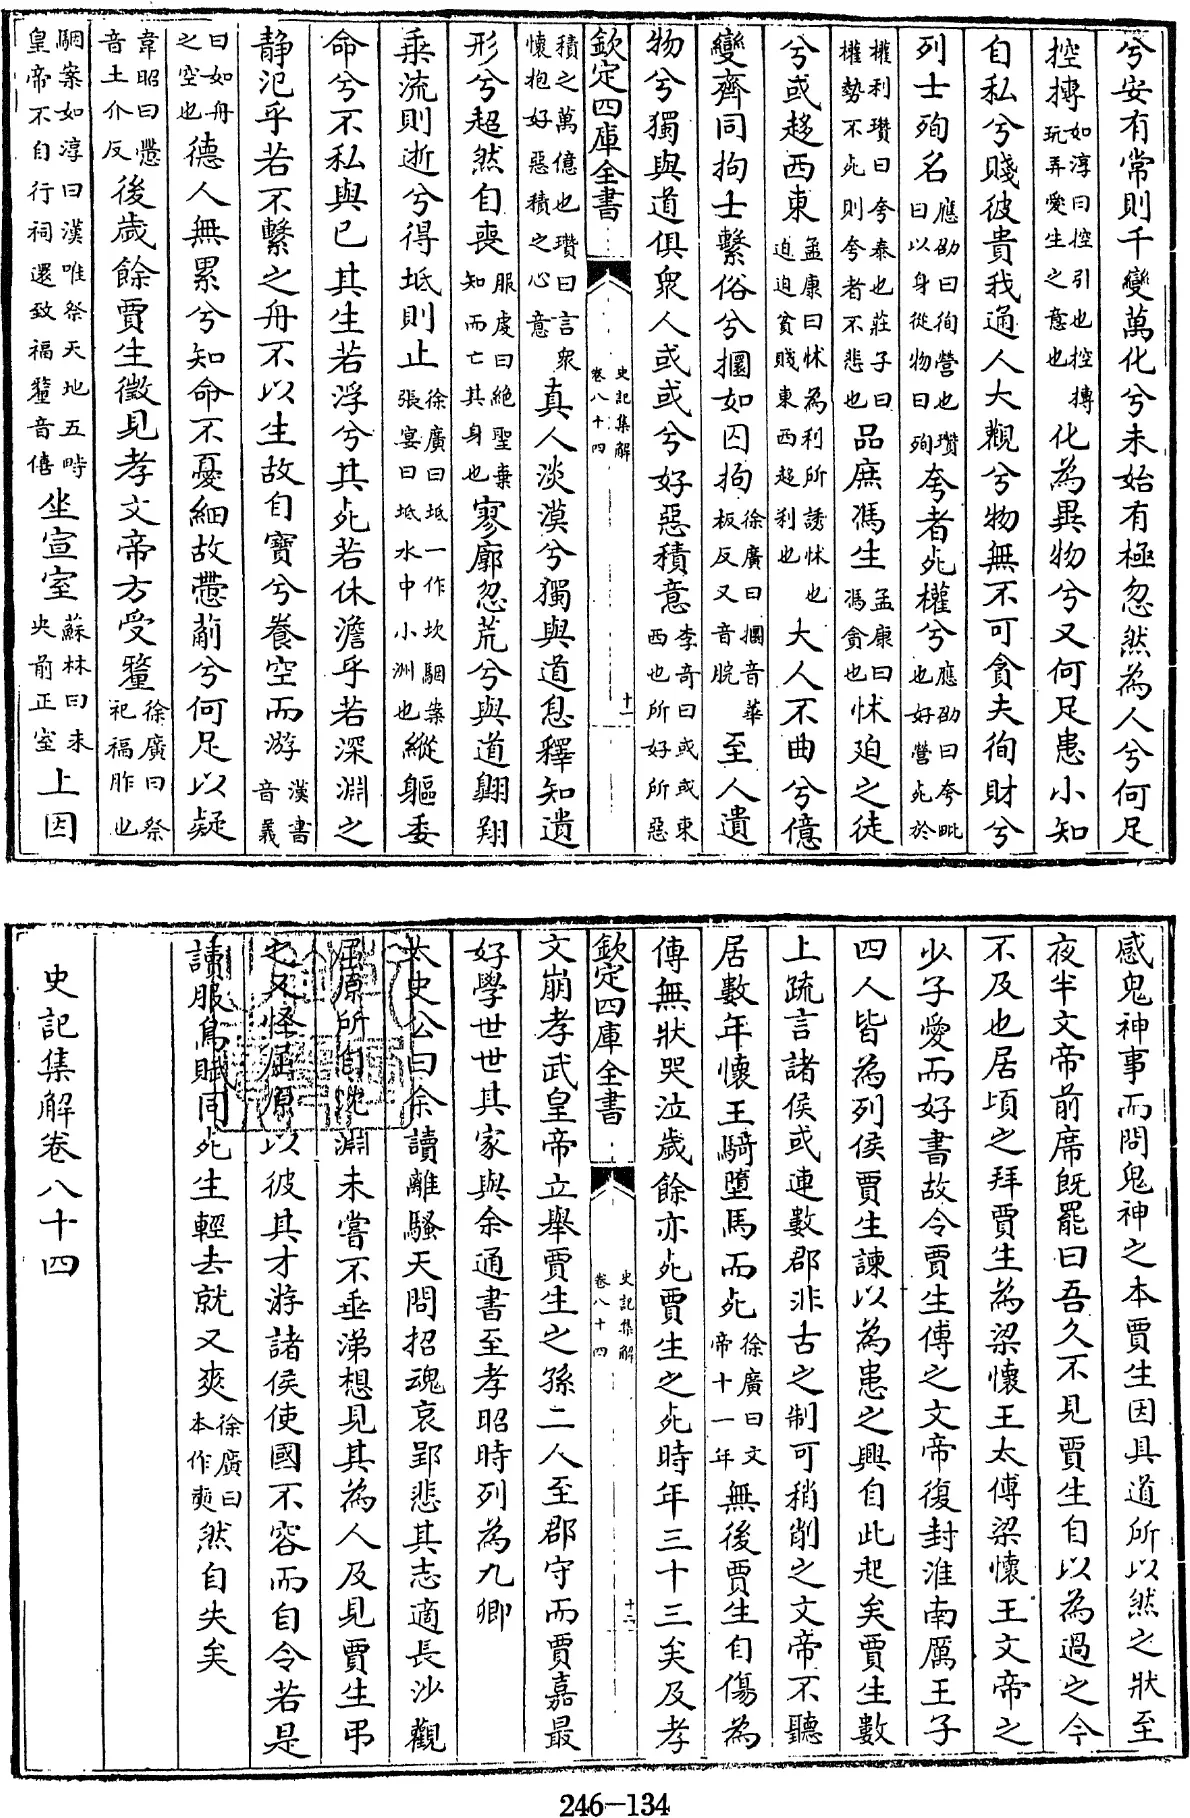 兮安有常則千變萬化兮未始有極忽然為人兮何足
控摶如淳曰控引也控摶玩弄愛生之意也化為異物兮又何足患小知
自私兮賤彼貴我通人大觀兮物無不可貪夫徇財兮
列士殉名應劭曰徇營也瓚曰以身從物曰殉夸者死權兮應劭曰夸毗也好營死於
權利瓚曰夸泰也莊子曰權勢不尤則夸者不悲也品庶馮生孟康曰馮貪也怵迫之徒
兮或趍西東孟康曰怵為利所誘怵也迫迫貧賤東西趍利也大人不曲兮億
變齊同拘士繫俗兮攌如囚拘徐廣曰攌音華板反又音脘至人遺
物兮獨與道俱衆人或或兮好惡積意李奇曰或或東西也所好所惡
欽定四庫全書 史記集解卷八十四 十一
積之萬億也瓚曰言衆懷抱好惡積之心意真人淡漠兮獨與道息釋知遺
形兮超然自喪服虔曰絶聖棄知而亡其身也寥廓忽荒兮與道翺翔
乘流則逝兮得坻則止徐廣曰坻一作坎駰案張宴曰坻水中小洲也縱軀委
命兮不私與已其生若浮兮其死若休澹乎若深淵之
静氾乎若不繫之舟不以生故自寶兮養空而游漢書音義
曰如舟之空也德人無累兮知命不憂細故慸葪兮何足以疑
韋昭曰慸音土介反後歲餘賈生徵見孝文帝方受釐徐廣曰祭祀福胙也
駰案如淳曰漢唯祭天地五畤皇帝不自行祠還致福釐音僖坐宣室蘇林曰未央前正室上因
感鬼神事而問鬼神之本賈生因具道所以然之狀至
夜半文帝前席既罷曰吾久不見賈生自以為過之今
不及也居頃之拜賈生為梁懷王太傅梁懷王文帝之
少子愛而好書故令賈生傅之文帝復封淮南厲王子
四人皆為列侯賈生諫以為患之興自此起矣賈生數
上疏言諸侯或連數郡非古之制可稍削之文帝不聽
居數年懷王騎墮馬而死徐廣曰文帝十一年無後賈生自傷為
傅無狀哭泣歲餘亦死賈生之死時年三十三矣及孝
欽定四庫全書 史記集解卷八十四 十二
文崩孝武皇帝立舉賈生之孫二人至郡守而賈嘉最
好學世世其家與余通書至孝昭時列為九卿
太史公曰余讀離騷天問招魂哀郢悲其志適長沙觀
屈原所自沈淵未嘗不垂涕想見其為人及見賈生弔
之又怪屈原以彼其才游諸侯使國不容而自令若是
讀服鳥賦同死生輕去就又爽徐廣曰一本作奭然自失矣
史記集解卷八十四
246—134